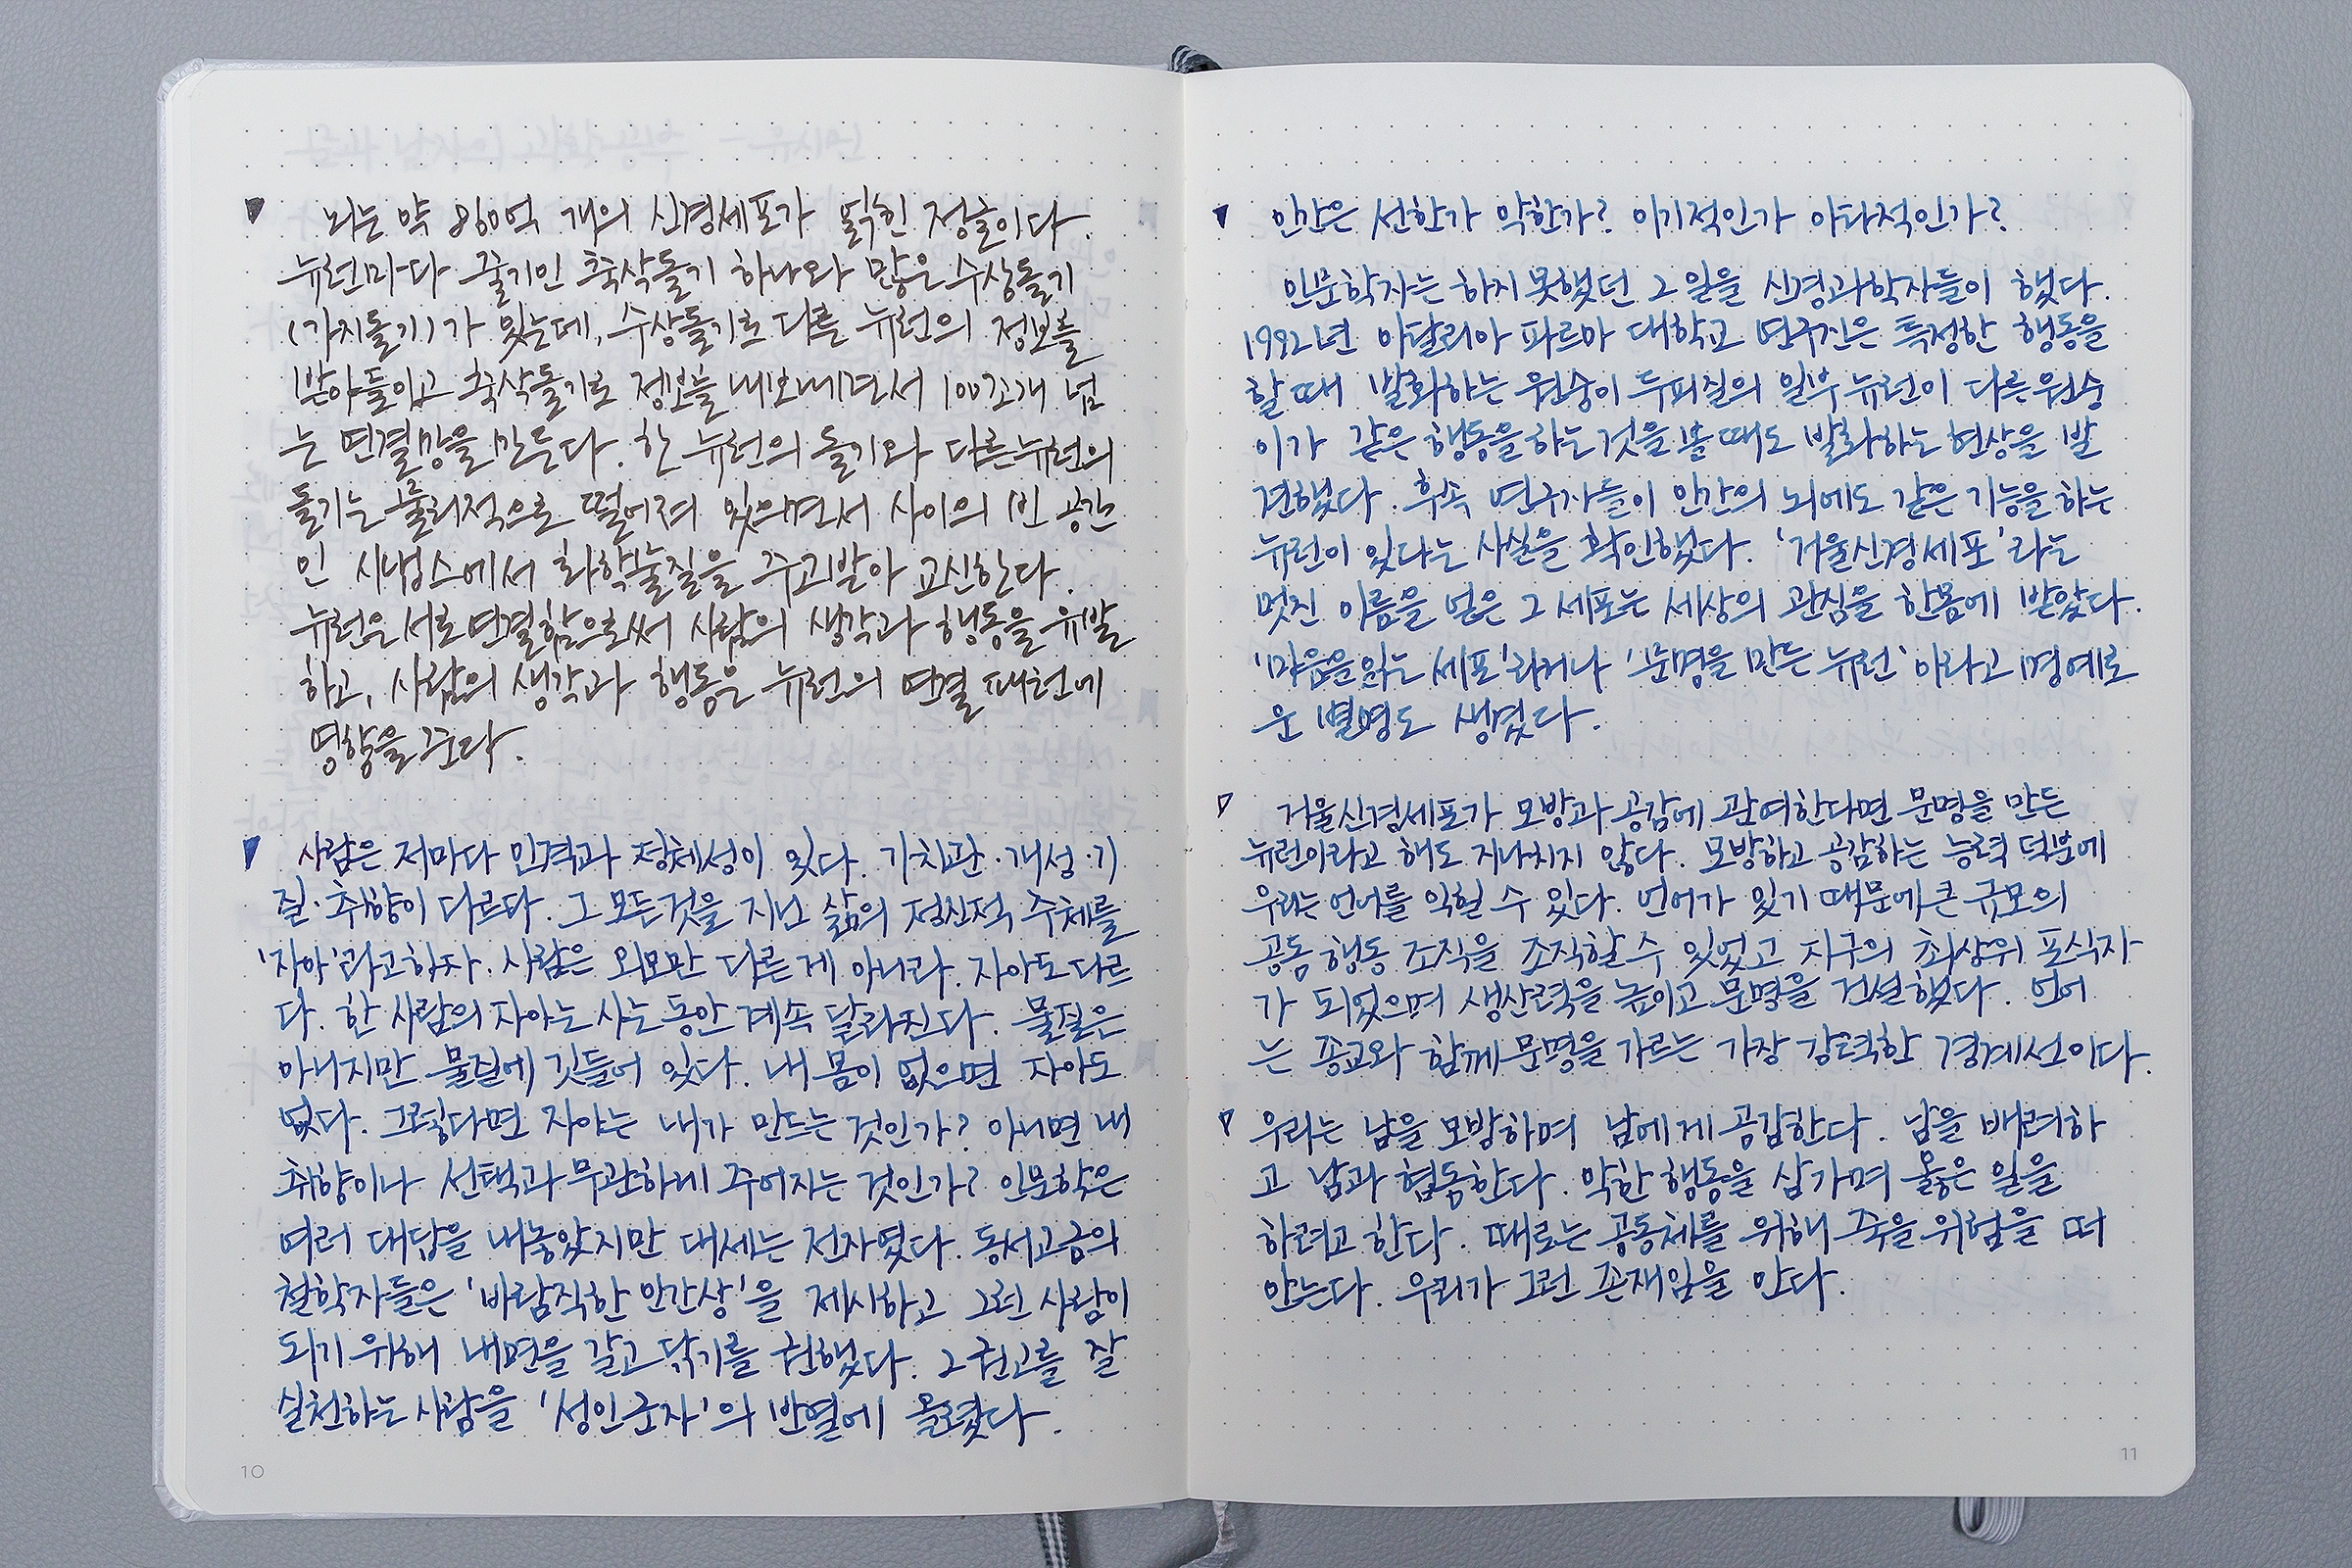 뇌는 약 860억 개의 신경세포가 얽힌 정글이다.
뉴런마다 줄기인 축삭돌기 하나와 많은 수상돌기
(가지돌기)가 있는데, 수상돌기로 다른 뉴런의 정보를
받아들이고 축삭돌기로 정보를 내보내면서 100조개 넘
는 연결망을 만든다. 한 뉴런의 돌기와 다른 뉴런의
돌기는 물리적으로 떨어져 있으면서 사이의 빈 공간
인 시냅스에서 화학물질을 주고받아 교신한다.
뉴런은 서로 연결함으로써 사람의 생각과 행동을 유발
하고, 사람의 생각과 행동은 뉴런의 연결 패턴에
영향을 준다.
사람은 저마다 인격과 정체성이 있다. 가치관·개성·기
질·취향이 다르다. 그 모든것을 지닌 삶의 정신적 주체를
'자아'라고하자. 사람은 외모만 다른 게 아니라. 자아도 다르
다. 한 사람의 자아는 사는 동안 계속 달라진다. 물질은
아니지만 물질에 깃들어 있다. 내 몸이 없으면 자아도
없다. 그렇다면 자아는 내가 만드는 것인가? 아니면 내
취향이나 선택과 무관하게 주어지는 것인가? 인문학은
여러 대답을 내놓았지만 대세는 전자였다. 동서고금의
철학자들은 '바람직한 인간상'을 제시하고 그런 사람이
되기 위해 내면을 갈고 닦기를 권했다. 그 권고를 잘
실천하는 사람을 '성인군자'의 반열에 올렸다.
10
인간은 선한가 악한가? 이기적인가 이타적인가?
인문학자는 하지 못했던 그 일을 신경과학자들이 했다.
1992년 이탈리아 파르마 대학교 연구진은 특정한 행동을
할 때 발화하는 원숭이 두피질의 일부 뉴런이 다른 원숭
이가 같은 행동을 하는 것을 볼 때도 발화하는 현상을 발
견했다. 후속 연구자들이 인간의 뇌에도 같은 기능을 하는
뉴런이 있다는 사실을 확인했다. '거울신경세포'라는
멋진 이름을 얻은 그 세포는 세상의 관심을 한몸에 받았다.
'마음을 읽는 세포'라거나 '문명을 만든 뉴런'이라고 명예로
운 별명도 생겼다.
거울신경세포가 모방과 공감에 관여한다면 문명을 만든
뉴런이라고 해도 지나치지 않다. 모방하고 공감하는 능력 덕분에
우리는 언어를 익힐 수 있다. 언어가 있기 때문에 큰 규모의
공동 행동 조직을 조직할 수 있었고 지구의 최상위 포식자
가 되었으며 생산력을 높이고 문명을 건설했다. 언어
는 종교와 함께 문명을 가르는 가장 강력한 경계선이다.
우리는 남을 모방하며 남에게 공감한다. 남을 배려하
고 남과 협동한다. 악한 행동을 삼가며 옳은 일을
하려고 한다. 때로는 공동체를 위해 죽을 위험을 떠
안는다. 우리가 그런 존재임을 안다.
11